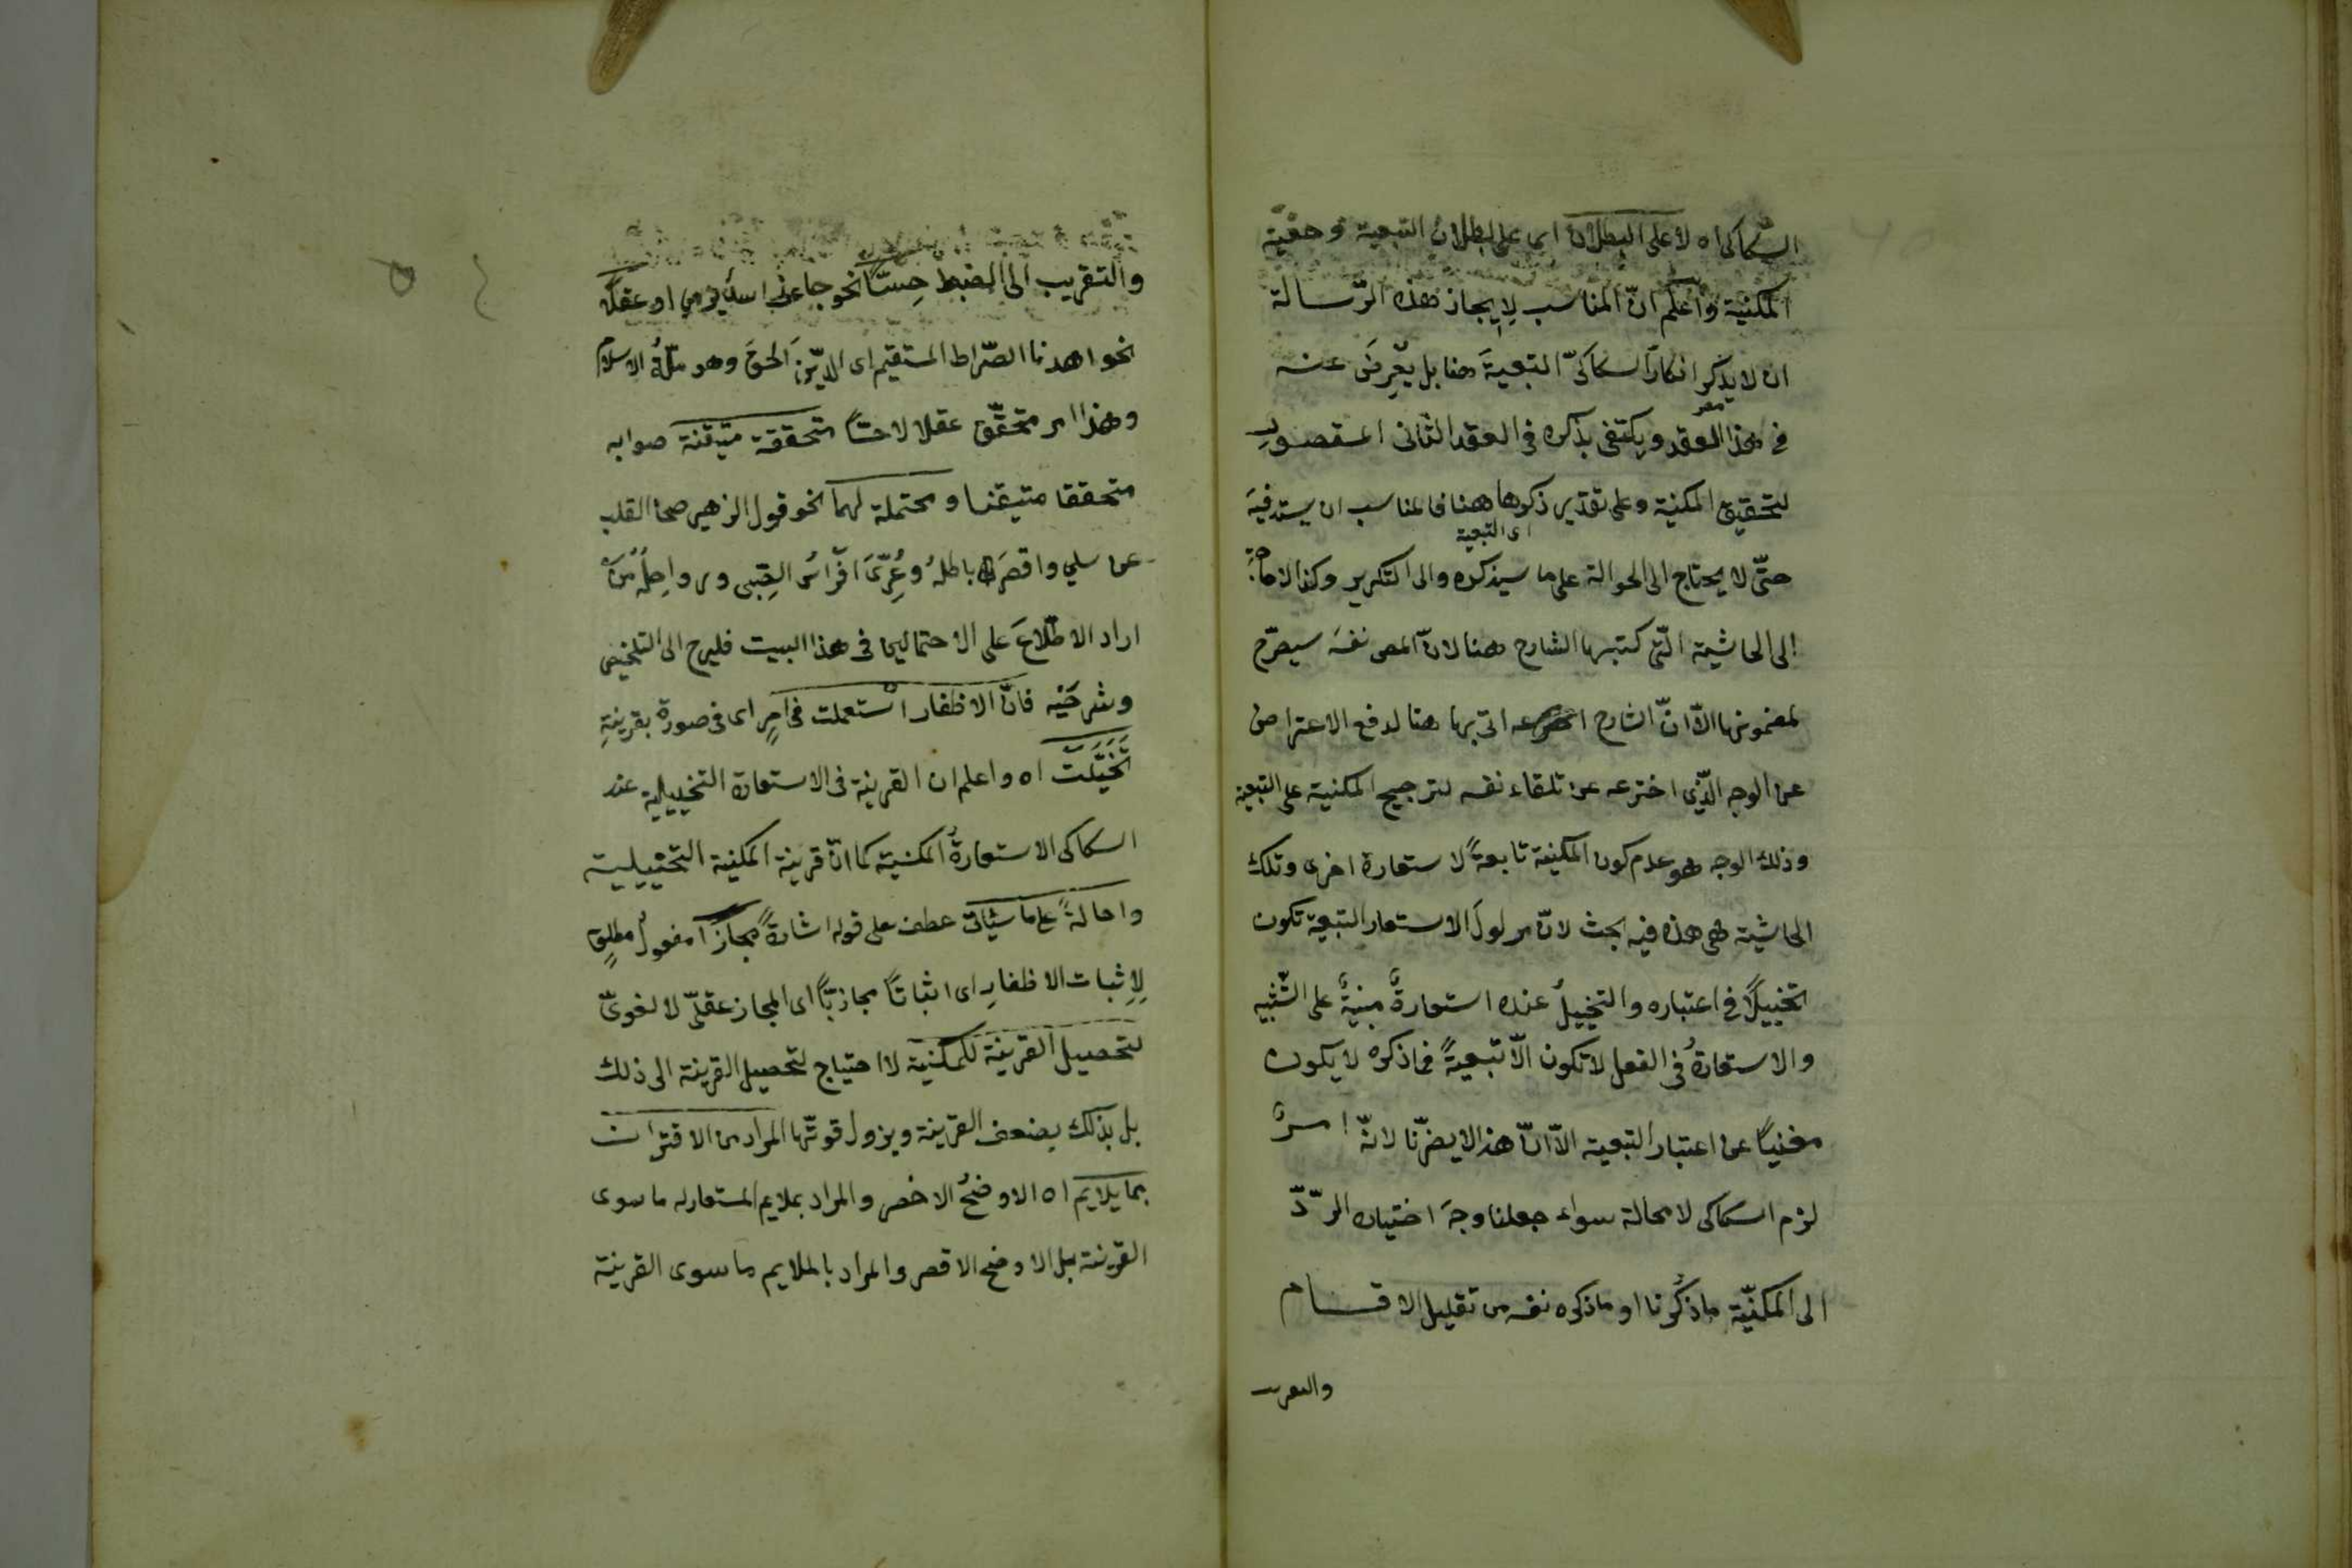 السكاكى اه لا على البطلان اى على بطلان التبعية وحقية
المكنية واعلم انّ المناسب لِايجاز هذه الرّسالة
ان لا يذكر انكارَ السكاكىّ التبعيةَ هنا بل يعْرِضَ عنه
فى هذا العقد ويكتفى بذكره فى العقد الثانى المعقودِ
لتحقيق المكنية وعلى تقدير ذكرها ههنا فالمناسب ان يستوفيَه
اى التبعية
حتّى لا يحتاج الى الحوالة على ما سيذكره والى التكرير وكذا لا حاجةَ
الى الحاشية الّتى كتبها الشارح هنا لانّ المص نفسَه سيصرّح
لمضمونها الاّ انّ الشارح اتى بها هنا لدفع الاعتراض
عن الوجه الّذى اخترعه عن تلقاء نفسه لترجيح المكنية على التبعية
وذلك الوجه هو عدم كون المكنية تابعةً لاستعارة اخرى وتلك
الحاشية هى هذه فيه بحث لانّ مدلولَ الاستعار التبعية تكون
تخييلًا فى اعتباره والتخييلُ عنده استعارةٌ مبنيةٌ على التّشبيه
والاستعارةُ فى الفعل لا تكون الاّ تبعيةً فما ذكره لا يكون
مغنيًا عن اعتبار التبعية الاّ انّ هذا لا يضرّنا لانّه امرٌ
لزم السكاكى لا محالة سواء جعلنا وجهَ اختياره الرّدّ
الى المكنيّة ما ذكرنا او ما ذكره نفسه من تقليل الاقسام
والتقريب
والتقريب الى الضبط حِسّاً نحو جاءنى اسد يرمى او عقلًا
نحو اهدنا الصّراط المستقيم اى الدّينَ الحقَّ وهو ملّةُ الاسلام
وهذا امر متحقّق عقلا لا حسّاً متحققة متيقنة صوابه
متحققا متيقنا ومحتملة لهما نحو قول الزهير صحا القلب
عن سلمى واقصَرَ باطلُه وعُرِّىَ افراسُ الصِّبى ورواحِلُه مَن
اراد الاطّلاعَ على الاحتمالين فى هذا البيت فليرجع الى التلخيص
وشرحَيْه فانّ الاظفار استعملت فى امرٍ اى فى صورة بقرينةِ
تَخَيَّلَت اه واعلم ان القرينة فى الاستعارة التخييلية عند
السكاكى الاستعارةُ المكنية كما انّ قرينة المكنية التخييلية
واحالةً على ما سيأتى عطف على قوله اشارةً مجازًا مفعولٌ مطلقٍ
لِاِثبات الاظفارِ اى اثباتًا مجازيًّا اى المجاز عقلىّ لا لغوىّ
لتحصيل القرينة للمكنية لا احتياج لتحصيل القرينة الى ذلك
بل بذلك يضعف القرينة ويزول قوتّها المراد من الاقتران
بما يلايم اه الاوضحُ الاخصر والمراد بملايم المستعارله ما سوى
القرينة بل الاوضح الاقصر والمراد بالملايم ما سوى القرينة